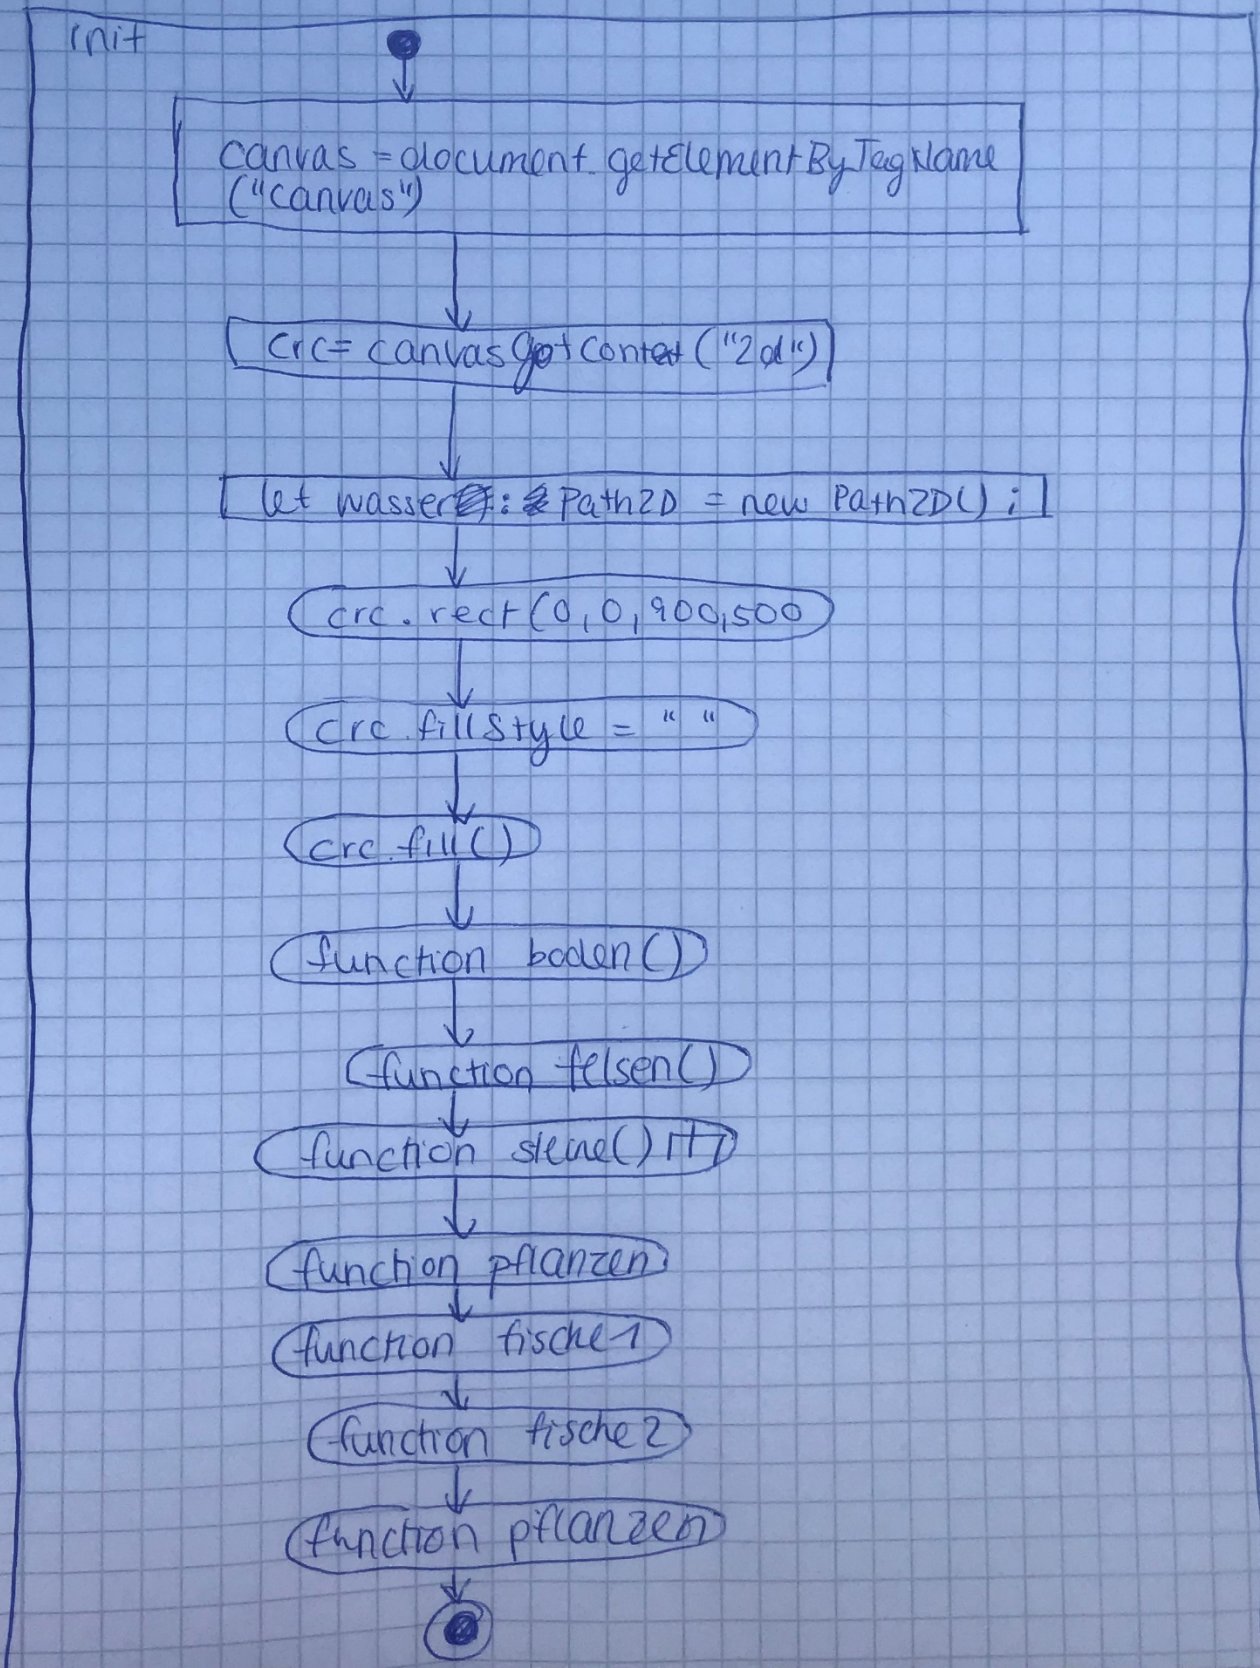 init
canvas = document.getElementByTagName
("canvas")
crc= canvas get Context ("2d")
let wasser : Path2D = new Path2D();
crc.rect(0,0,900,500
crc.fillStyle = " "
crc.fill()
function boden()
function felsen()
function steine()
function pflanzen
function fische1
function fische2
function pflanzen